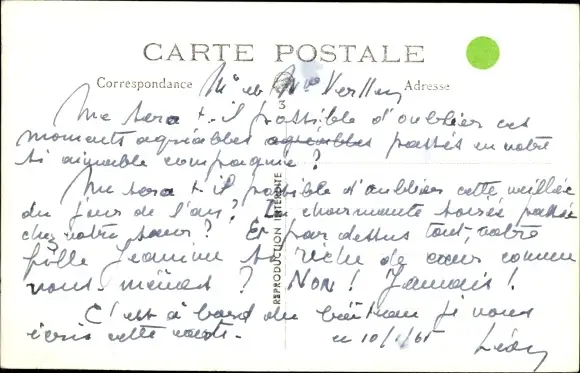 CARTE POSTALE
Correspondance
Adresse
Mr et Mme
Me sera t-il possible d'oublier ces
moments agréables agréables passés en votre
si aimable compagnie ?
Me sera t il possible d'oublier cette veillée
du jour de l'an ? La charmante soirée passée
chez votre sœur ? Et par dessus tout, votre
fille Jeanine si riche de cœur comme
vous-mêmes ? Non ! Jamais !
C'est à bord du bateau je vous
écris cette carte.
en 10/1/61
Léon
REPRODUCTION INTERDITE
3